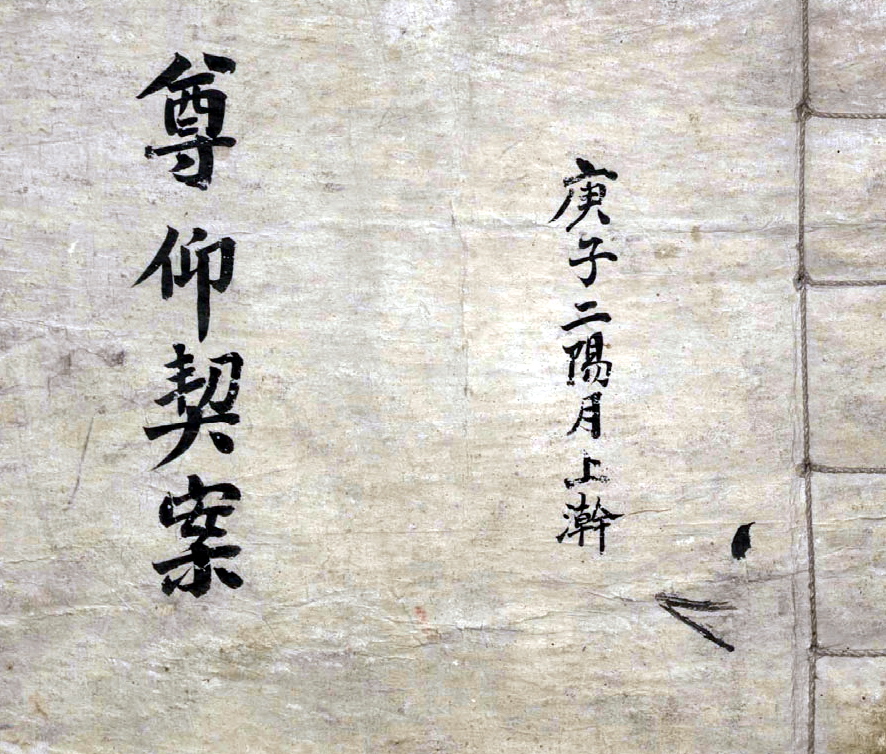 庚子二陽月上澣
尊仰契案